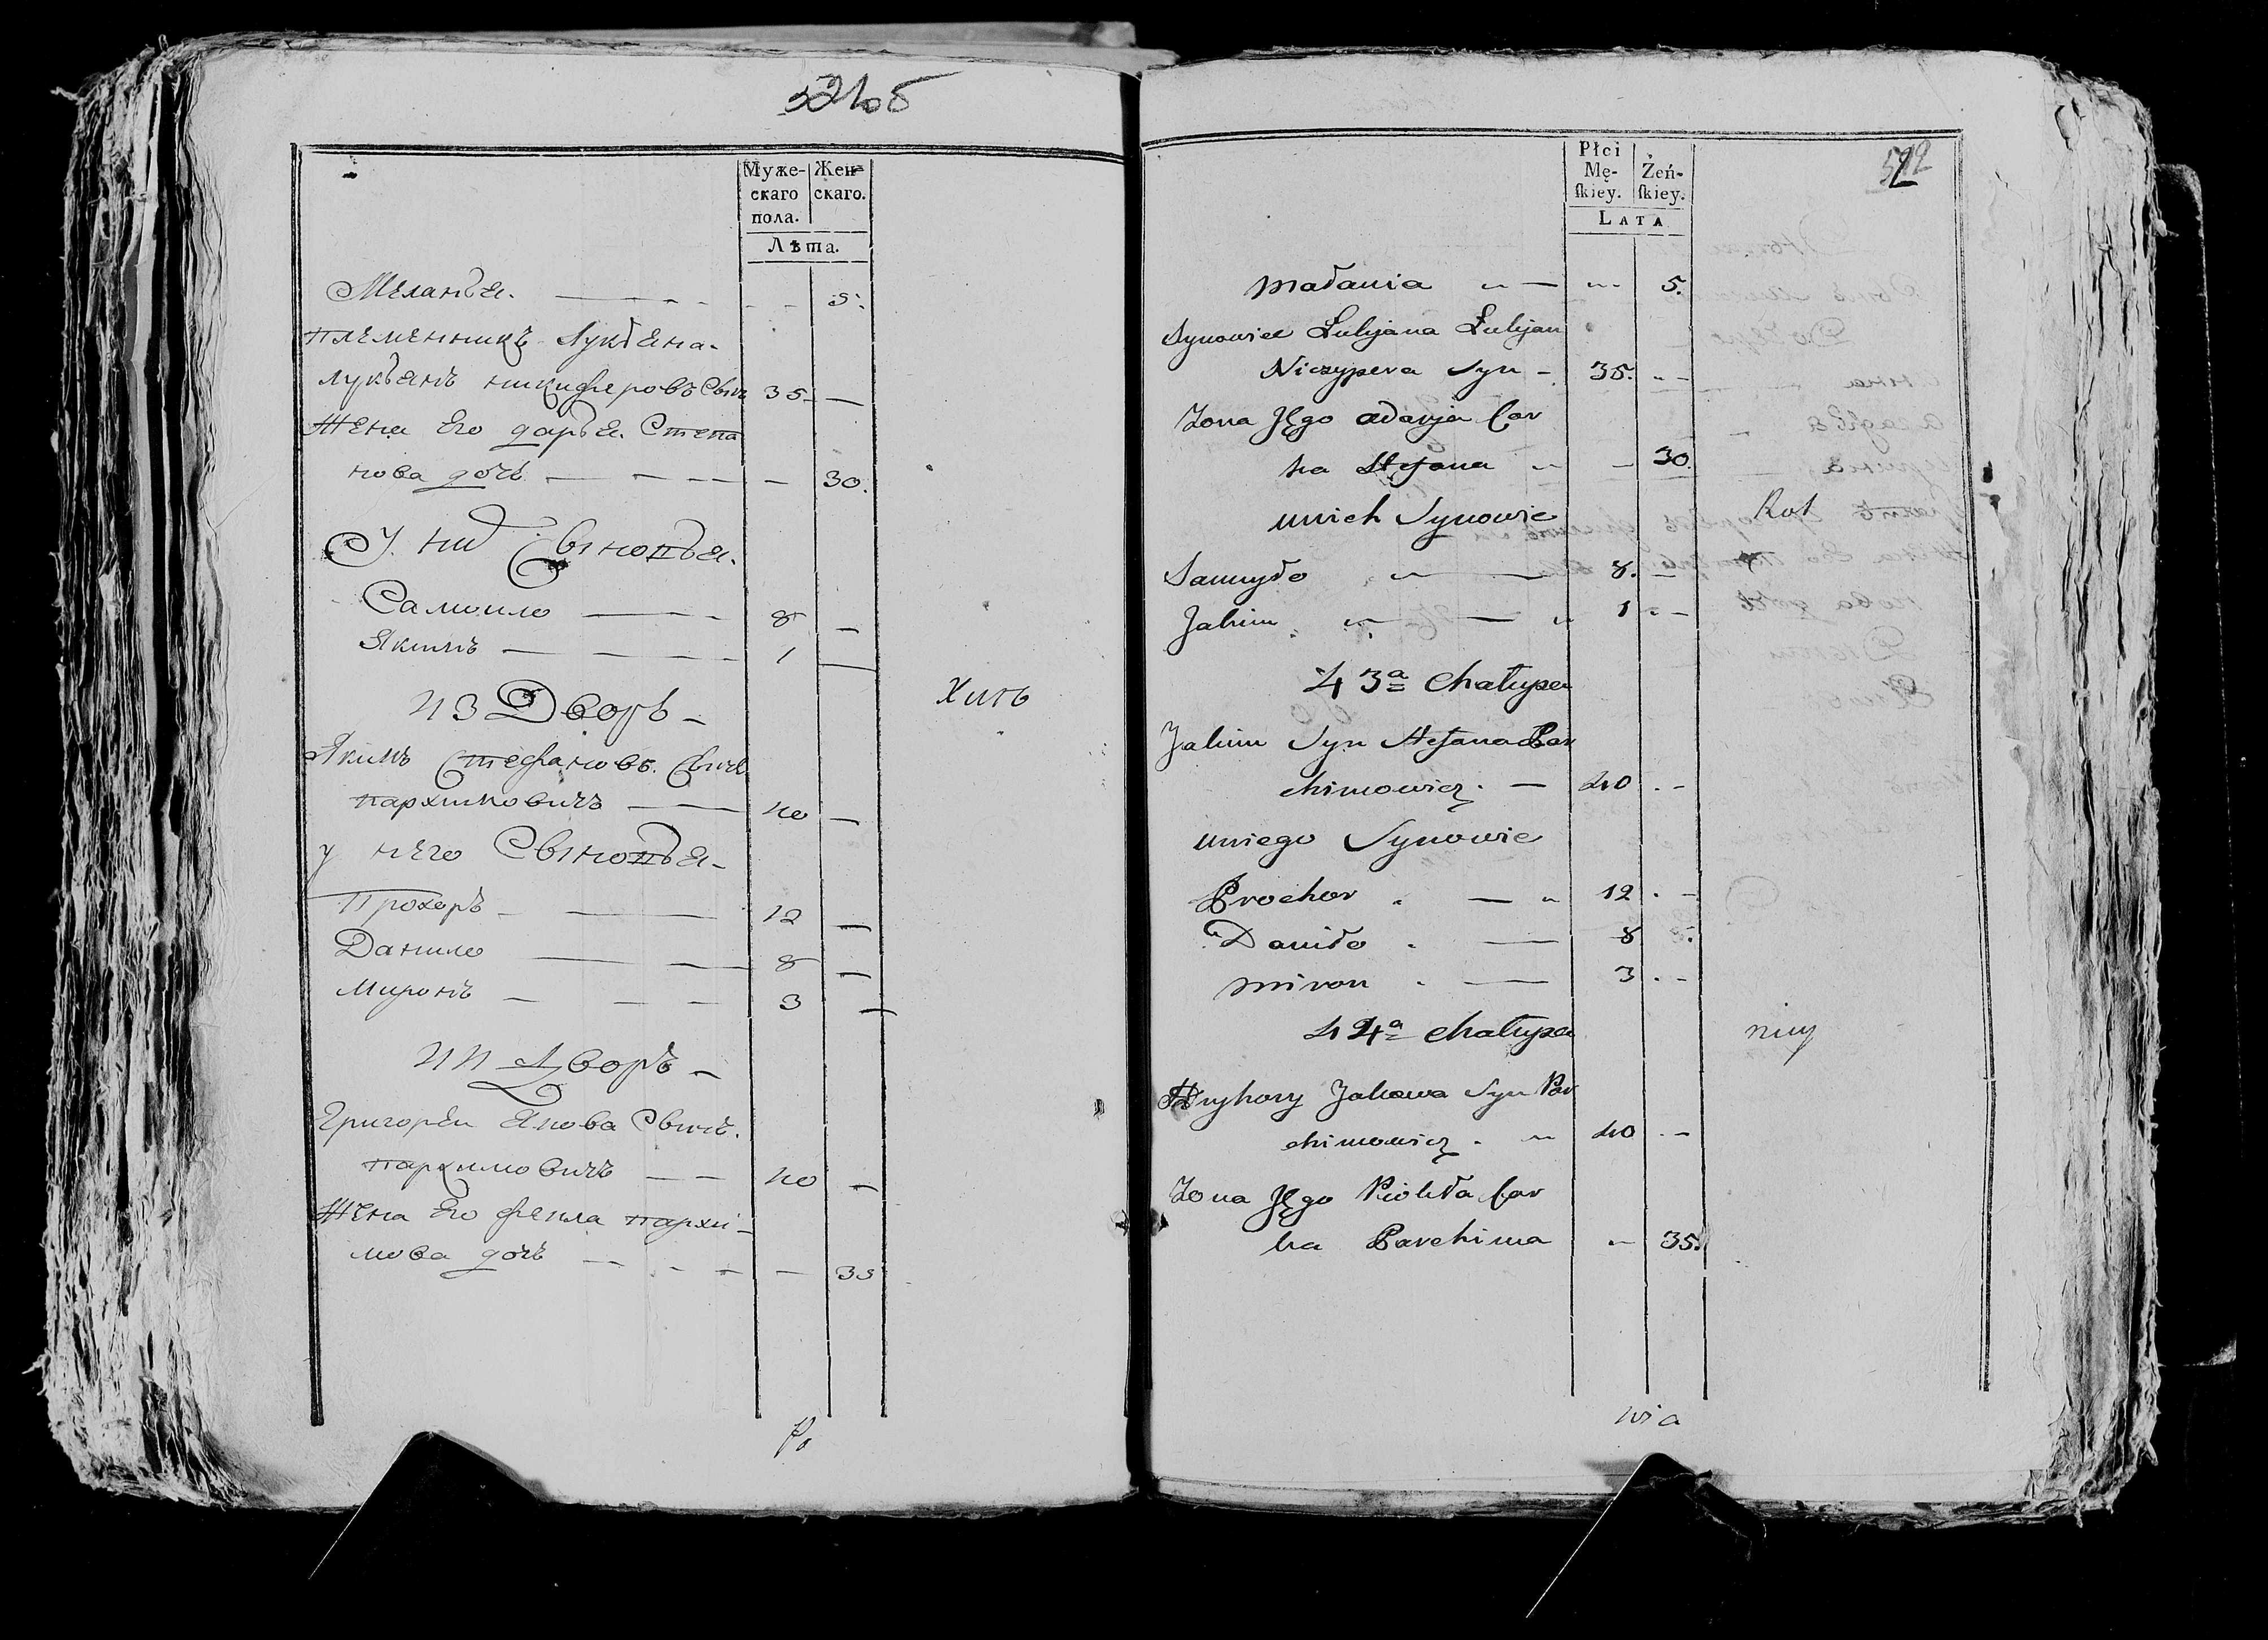 521об
Муже- Жен-
скаго скаго.
пола.
Лѣта.
Меланья. 5.
племенникъ Лукьяна.
лукьянъ никифоровъ Сынъ 35
Жена Его дарья Степа
нова дочь 30.
У них Сыновья.
Самоило 8
Якимъ 1
43 Дворъ
Якимъ Стефановъ Сынъ
пархимовичъ 40
у него Сыновья
Прохоръ 12
Данило 8
Миронъ 3
44 Дворъ
Григорѣи Якова Сынъ.
пархимовичъ 40
Жена Его фекла пархи-
мова дочь 35
522
Płci
Mę- Żeń-
ſkiey. ſkiey.
LATA
Małania 5.
Synowiec Łukjana Łukjan
Niczypera Syn 35.
Żona Jego adarja Cor
ka Stefana 30.
unich Synowie
Samuyło 8.
Jakim 1
43a Chałupa
Jakim Syn Stefana Par
chimowicz 40
uniego Synowie
Prochor 12
Daniło 8
Miron 3
44a Chałupa
Hryhory Jakowa Syn Par
chimowicz 40
Żona Jego Cor
ka Parchima 35.